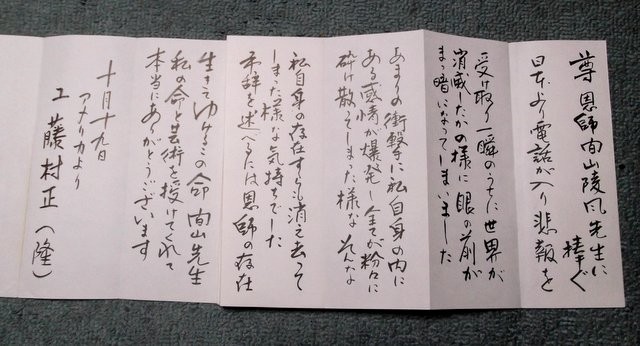 尊恩師間山陵風先生に
捧ぐ
日本より電話が入り悲報を
受け取り一瞬のうちに世界が
消滅したかの様に眼の前が
まっ暗になってしまいました
あまりの衝撃に私自身の内に
ある感情が爆発し全てが粉々に
砕け散ってしまった様なそんな
私自身の存在すらも消え去って
しまった様な気持ちでした
弔辞を述べるには恩師の存在
生きてゆけるこの命 間山先生
私の命と芸術を授けてくれて
本当にありがとうございます
十月十九日
アメリカより
工藤村正(隆)